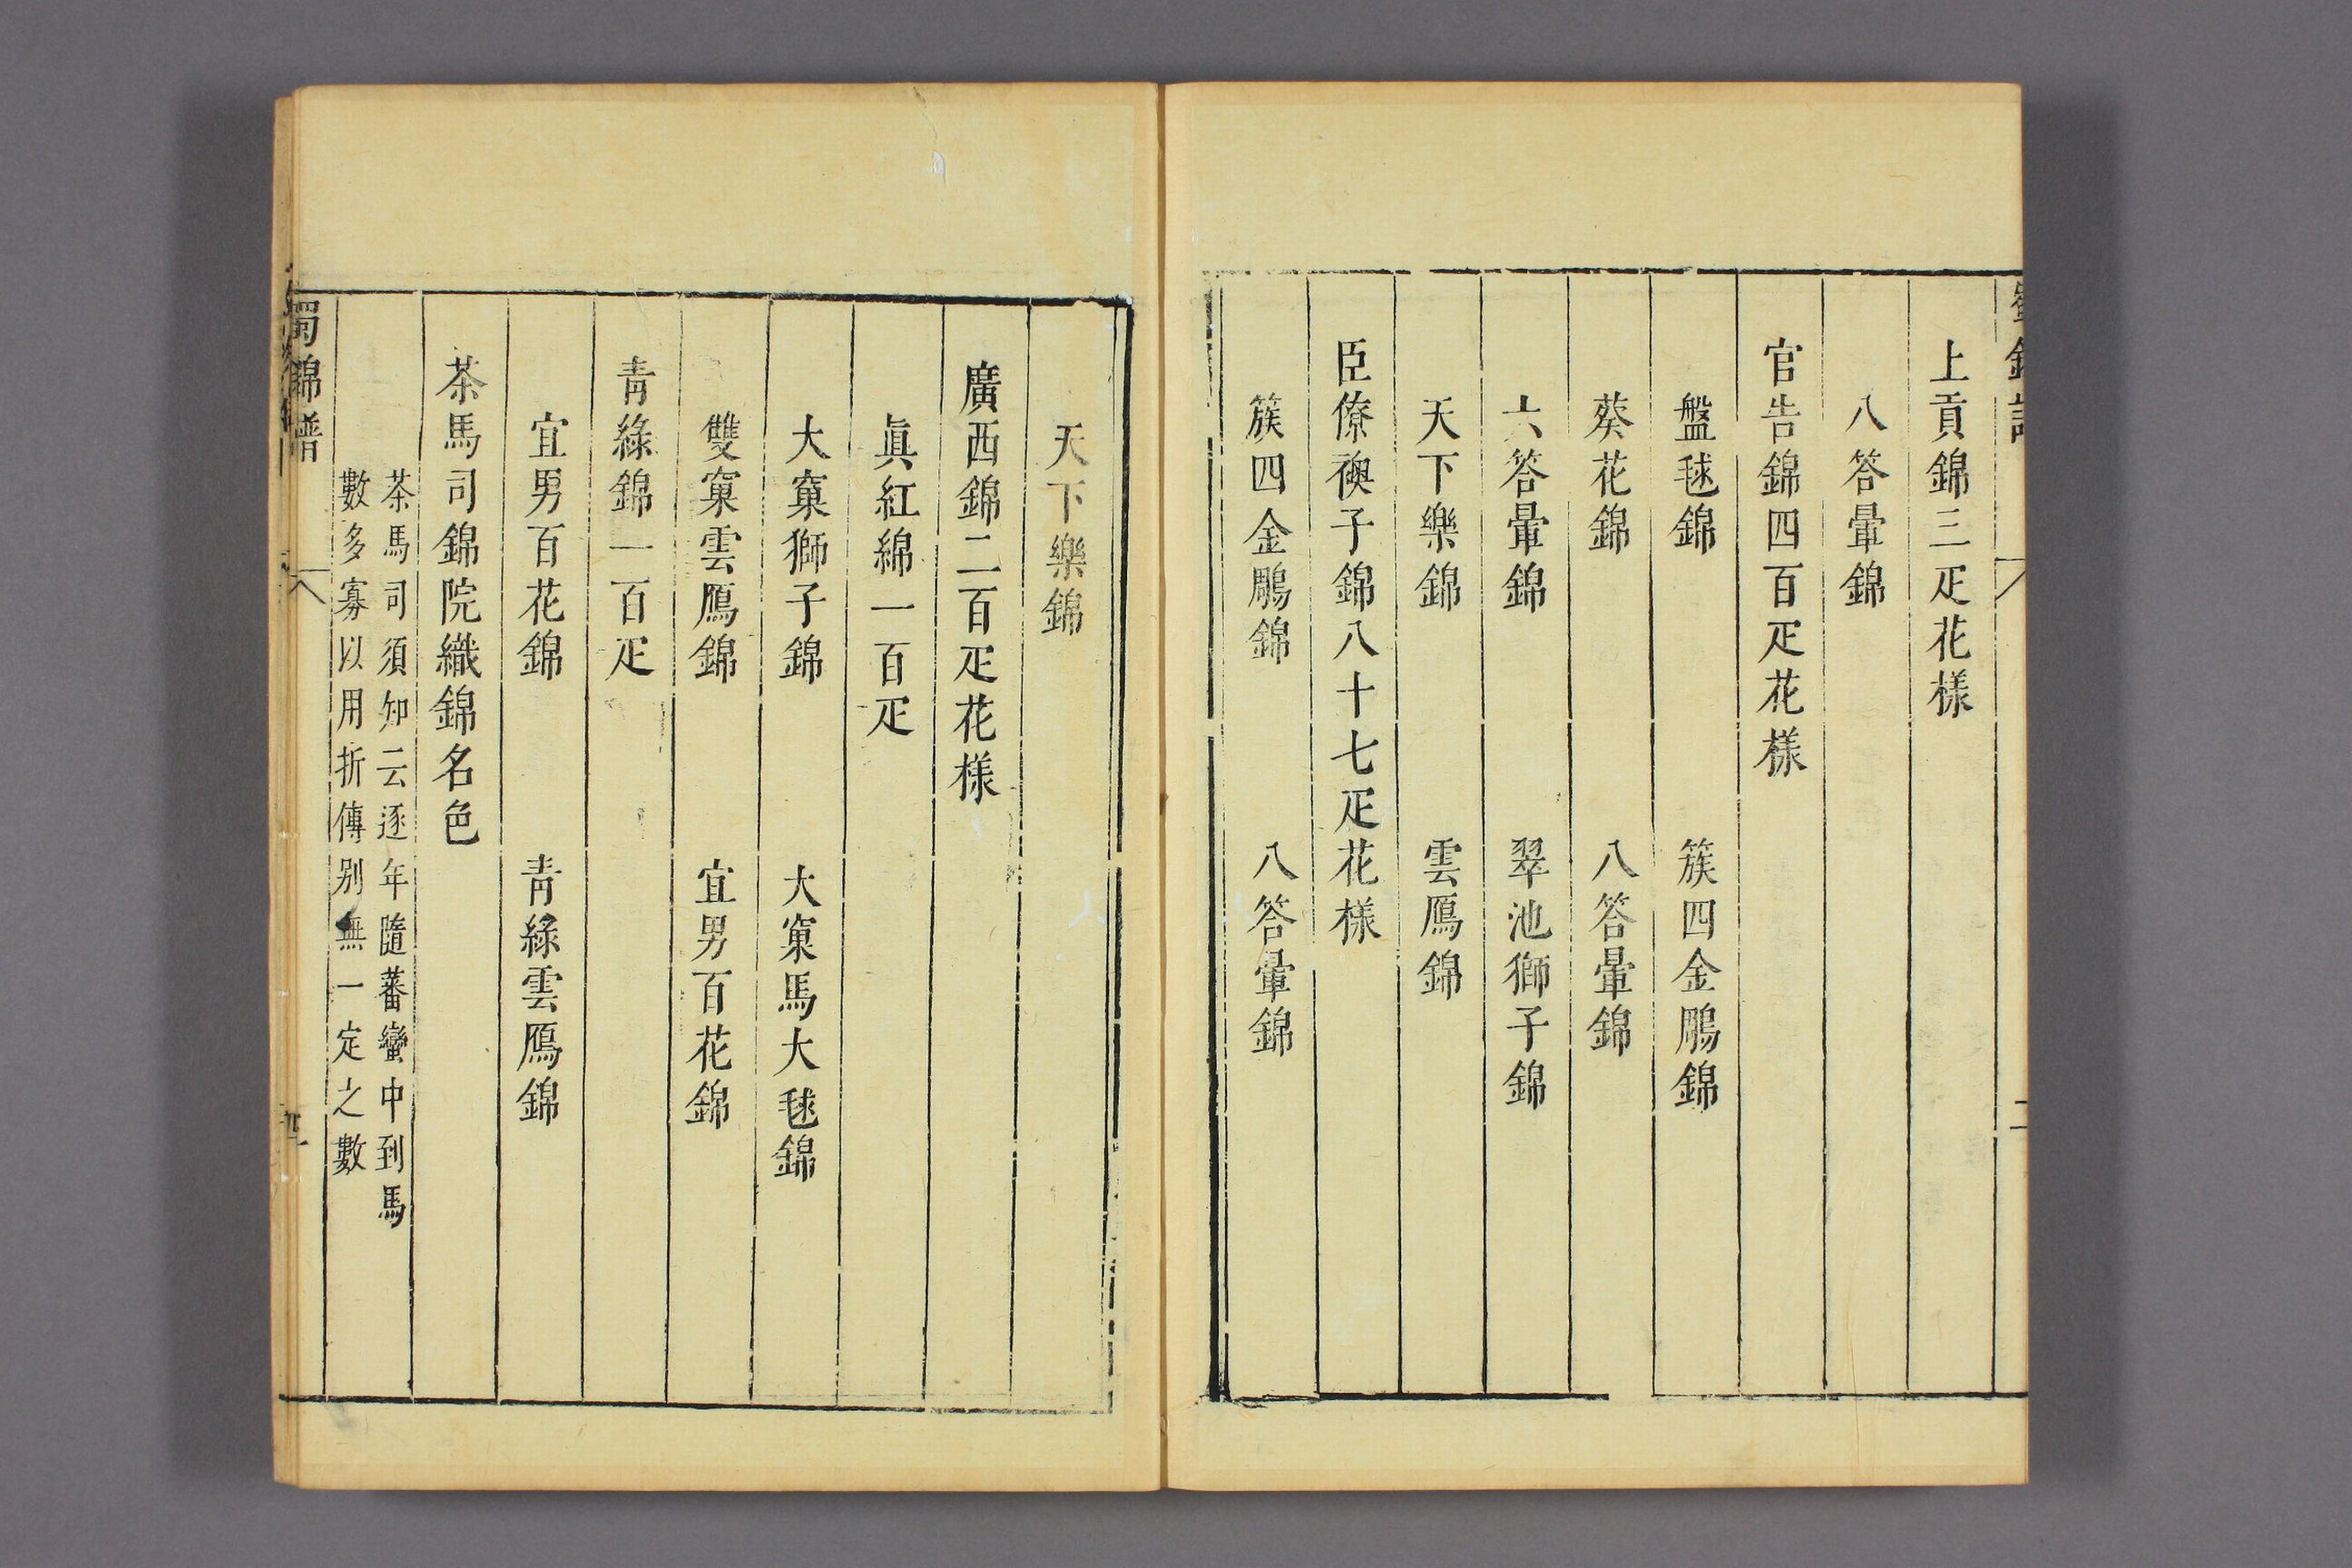 上貢錦三疋花樣
八答暈錦
官告錦四百疋花樣
盤毬錦　簇四金鵰錦
葵花錦　八答暈錦
六答暈錦　翠池獅子錦
天下樂錦　雲鴈錦
臣僚襖子錦八十七疋花樣
簇四金鵰錦　八答暈錦
天下樂錦
廣西錦二百疋花樣
眞紅綿一百疋
大窠獅子錦　大窠馬大毬錦
雙窠雲鴈錦　宜男百花錦
青綠錦一百疋
宜男百花錦　青綠雲鴈錦
茶馬司錦院織錦名色
茶馬司須知云逐年隨蕃蠻中到馬
數多寡以用折傳别無一定之數
蜀錦譜
四